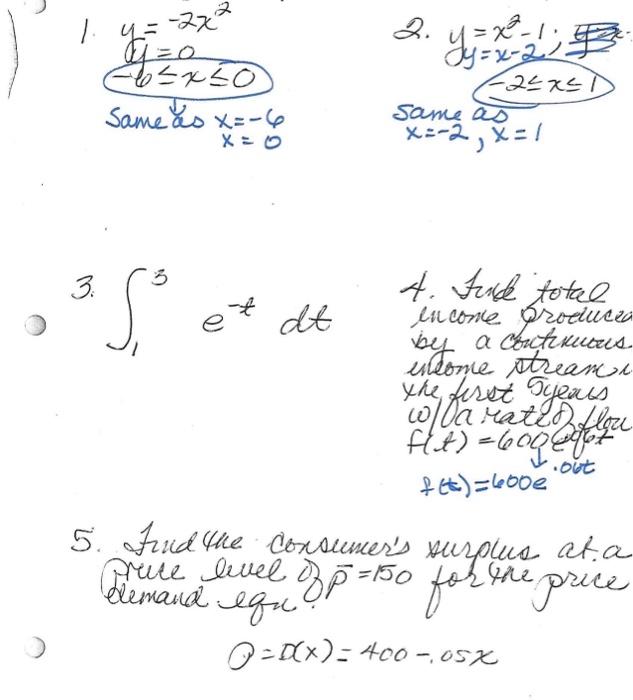 1. y = -2x²
y = 0
-6 ≤ x ≤ 0
Same as x = -6
x = 0
2. y = x² - 1;
y = x - 2;
-2 ≤ x ≤ 1
Same as
x = -2, x = 1
3. ∫₁³ e^-t dt
4. Find total
income produced
by a continuous
income stream
the first 5 years
w/ a rate of flow
f(t) = 600
f(t) = 600e^.06t
5. Find the consumer's surplus at a
price level of p̄ = 150 for the price
demand eqn.
P = D(x) = 400 - .05x